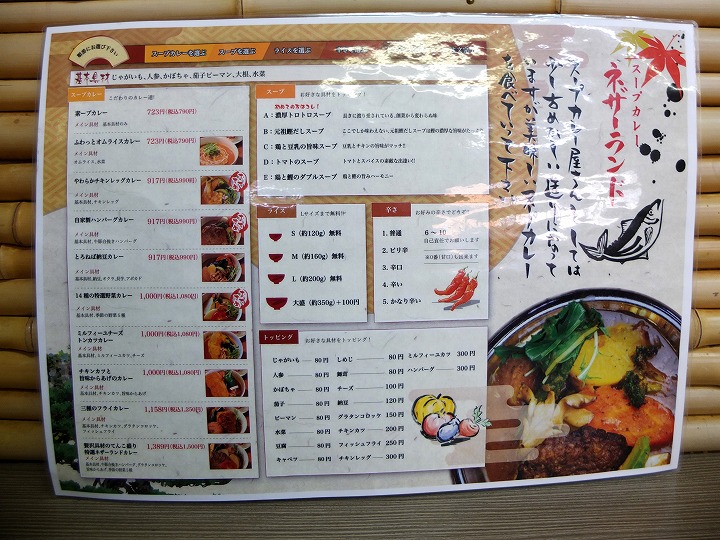 順番にお選び下さい
スープカレーを選ぶ
スープを選ぶ
ライスを選ぶ
基本具材 じゃがいも、人参、かぼちゃ、茄子ピーマン、大根、水菜
スープカレー
こだわりのカレー達!
素スープカレー 723円(税込790円)
メイン具材
基本具材のみ
ふわっとオムライスカレー 723円(税込790円)
メイン具材
オムライス、水菜
やわらかチキンレッグカレー 917円(税込990円)
メイン具材
基本具材、チキンレッグ
自家製ハンバーグカレー 917円(税込990円)
メイン具材
基本具材、牛豚合挽きハンバーグ
とろねば納豆カレー 917円(税込990円)
メイン具材
基本具材、納豆、オクラ、長芋、アボカド
14種の特選野菜カレー 1,000円(税込1,080円)
メイン具材
基本具材、季節の野菜5種
ミルフィーユチーズ
トンカツカレー 1,000円(税込1,080円)
メイン具材
基本具材、ミルフィーユカツ、チーズ
チキンカツと
旨味からあげのカレー 1,000円(税込1,080円)
メイン具材
基本具材、チキンカツ、旨味からあげ
三種のフライカレー 1,158円(税込1,250円)
メイン具材
基本具材、チキンカツ、グラタンコロッケ、
フィッシュフライ
贅沢具材のてんこ盛り
特選ネザーランドカレー 1,389円(税込1,500円)
メイン具材
スープ
お好きな具材をトッピング!
初めての方はコレ!
A:濃厚トロトロスープ 長きに渡り愛されている、創業から変わらぬ味
B:元祖鰹だしスープ ここでしか味わえない、元祖鰹だしスープは鰹の濃厚な旨味がたっぷり
C:鶏と豆乳の旨味スープ 豆乳とチキンの旨味がマッチ!
D:トマトのスープ トマトとスパイスの素敵な出逢い!!
E:鶏と鰹のダブルスープ 鶏と鰹の旨みハーモニー
ライス
Lサイズまで無料!!
S(約120g)無料
M(約160g)無料
L(約200g)無料
大盛(約350g)+100円
辛さ
お好みの辛さでどうぞ!
1.普通
2.ピリ辛
3.辛口
4.辛い
5.かなり辛い
6~10
自己責任でお願いします
※0番(甘口)も出来ます
トッピング
お好きな具材をトッピング!
じゃがいも 80円
人参 80円
かぼちゃ 80円
茄子 80円
ピーマン 80円
水菜 80円
豆腐 80円
キャベツ 80円
しめじ 80円
舞茸 80円
チーズ 100円
納豆 120円
グラタンコロッケ 150円
チキンカツ 200円
フィッシュフライ 250円
チキンレッグ 300円
ミルフィーユカツ 300円
ハンバーグ 300円
スープカレー
ネザーランド
スープカレー屋さんとしては